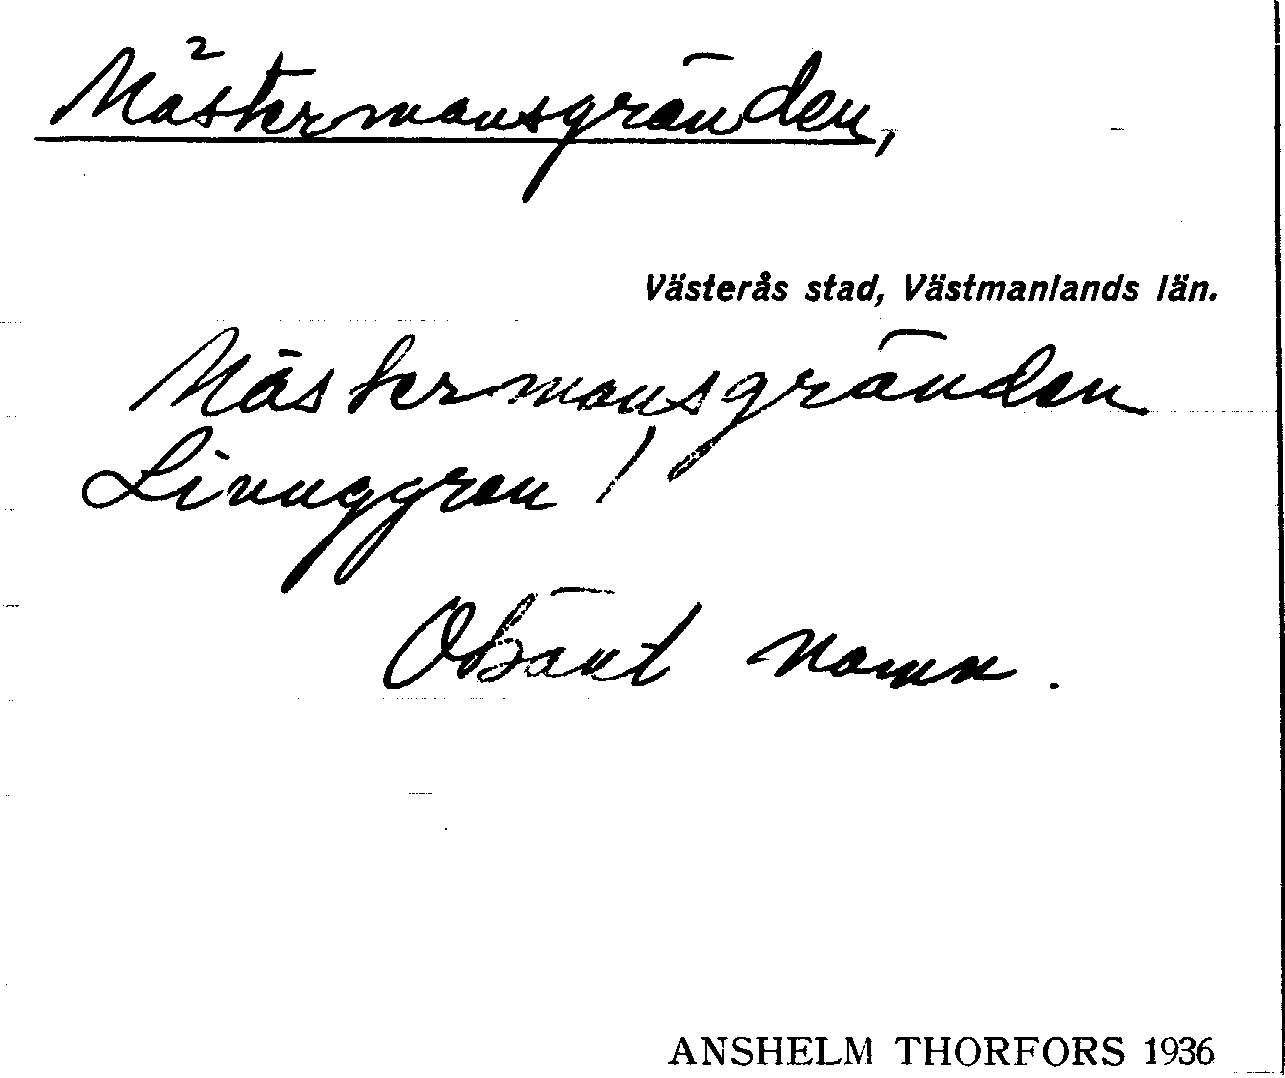 Mästermansgränden,
Västerås stad, Västmanlands län.
Mästermansgränden
Linnggren!
Obänt namn.
ANSHELM THORFORS 1936